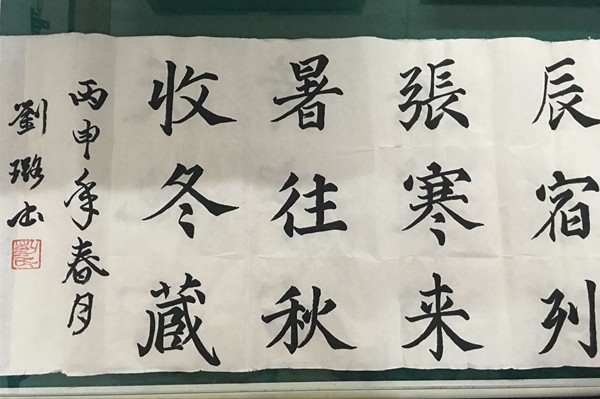 辰宿列
張寒来
暑往秋
收冬蔵
丙申年春月
劉璐书